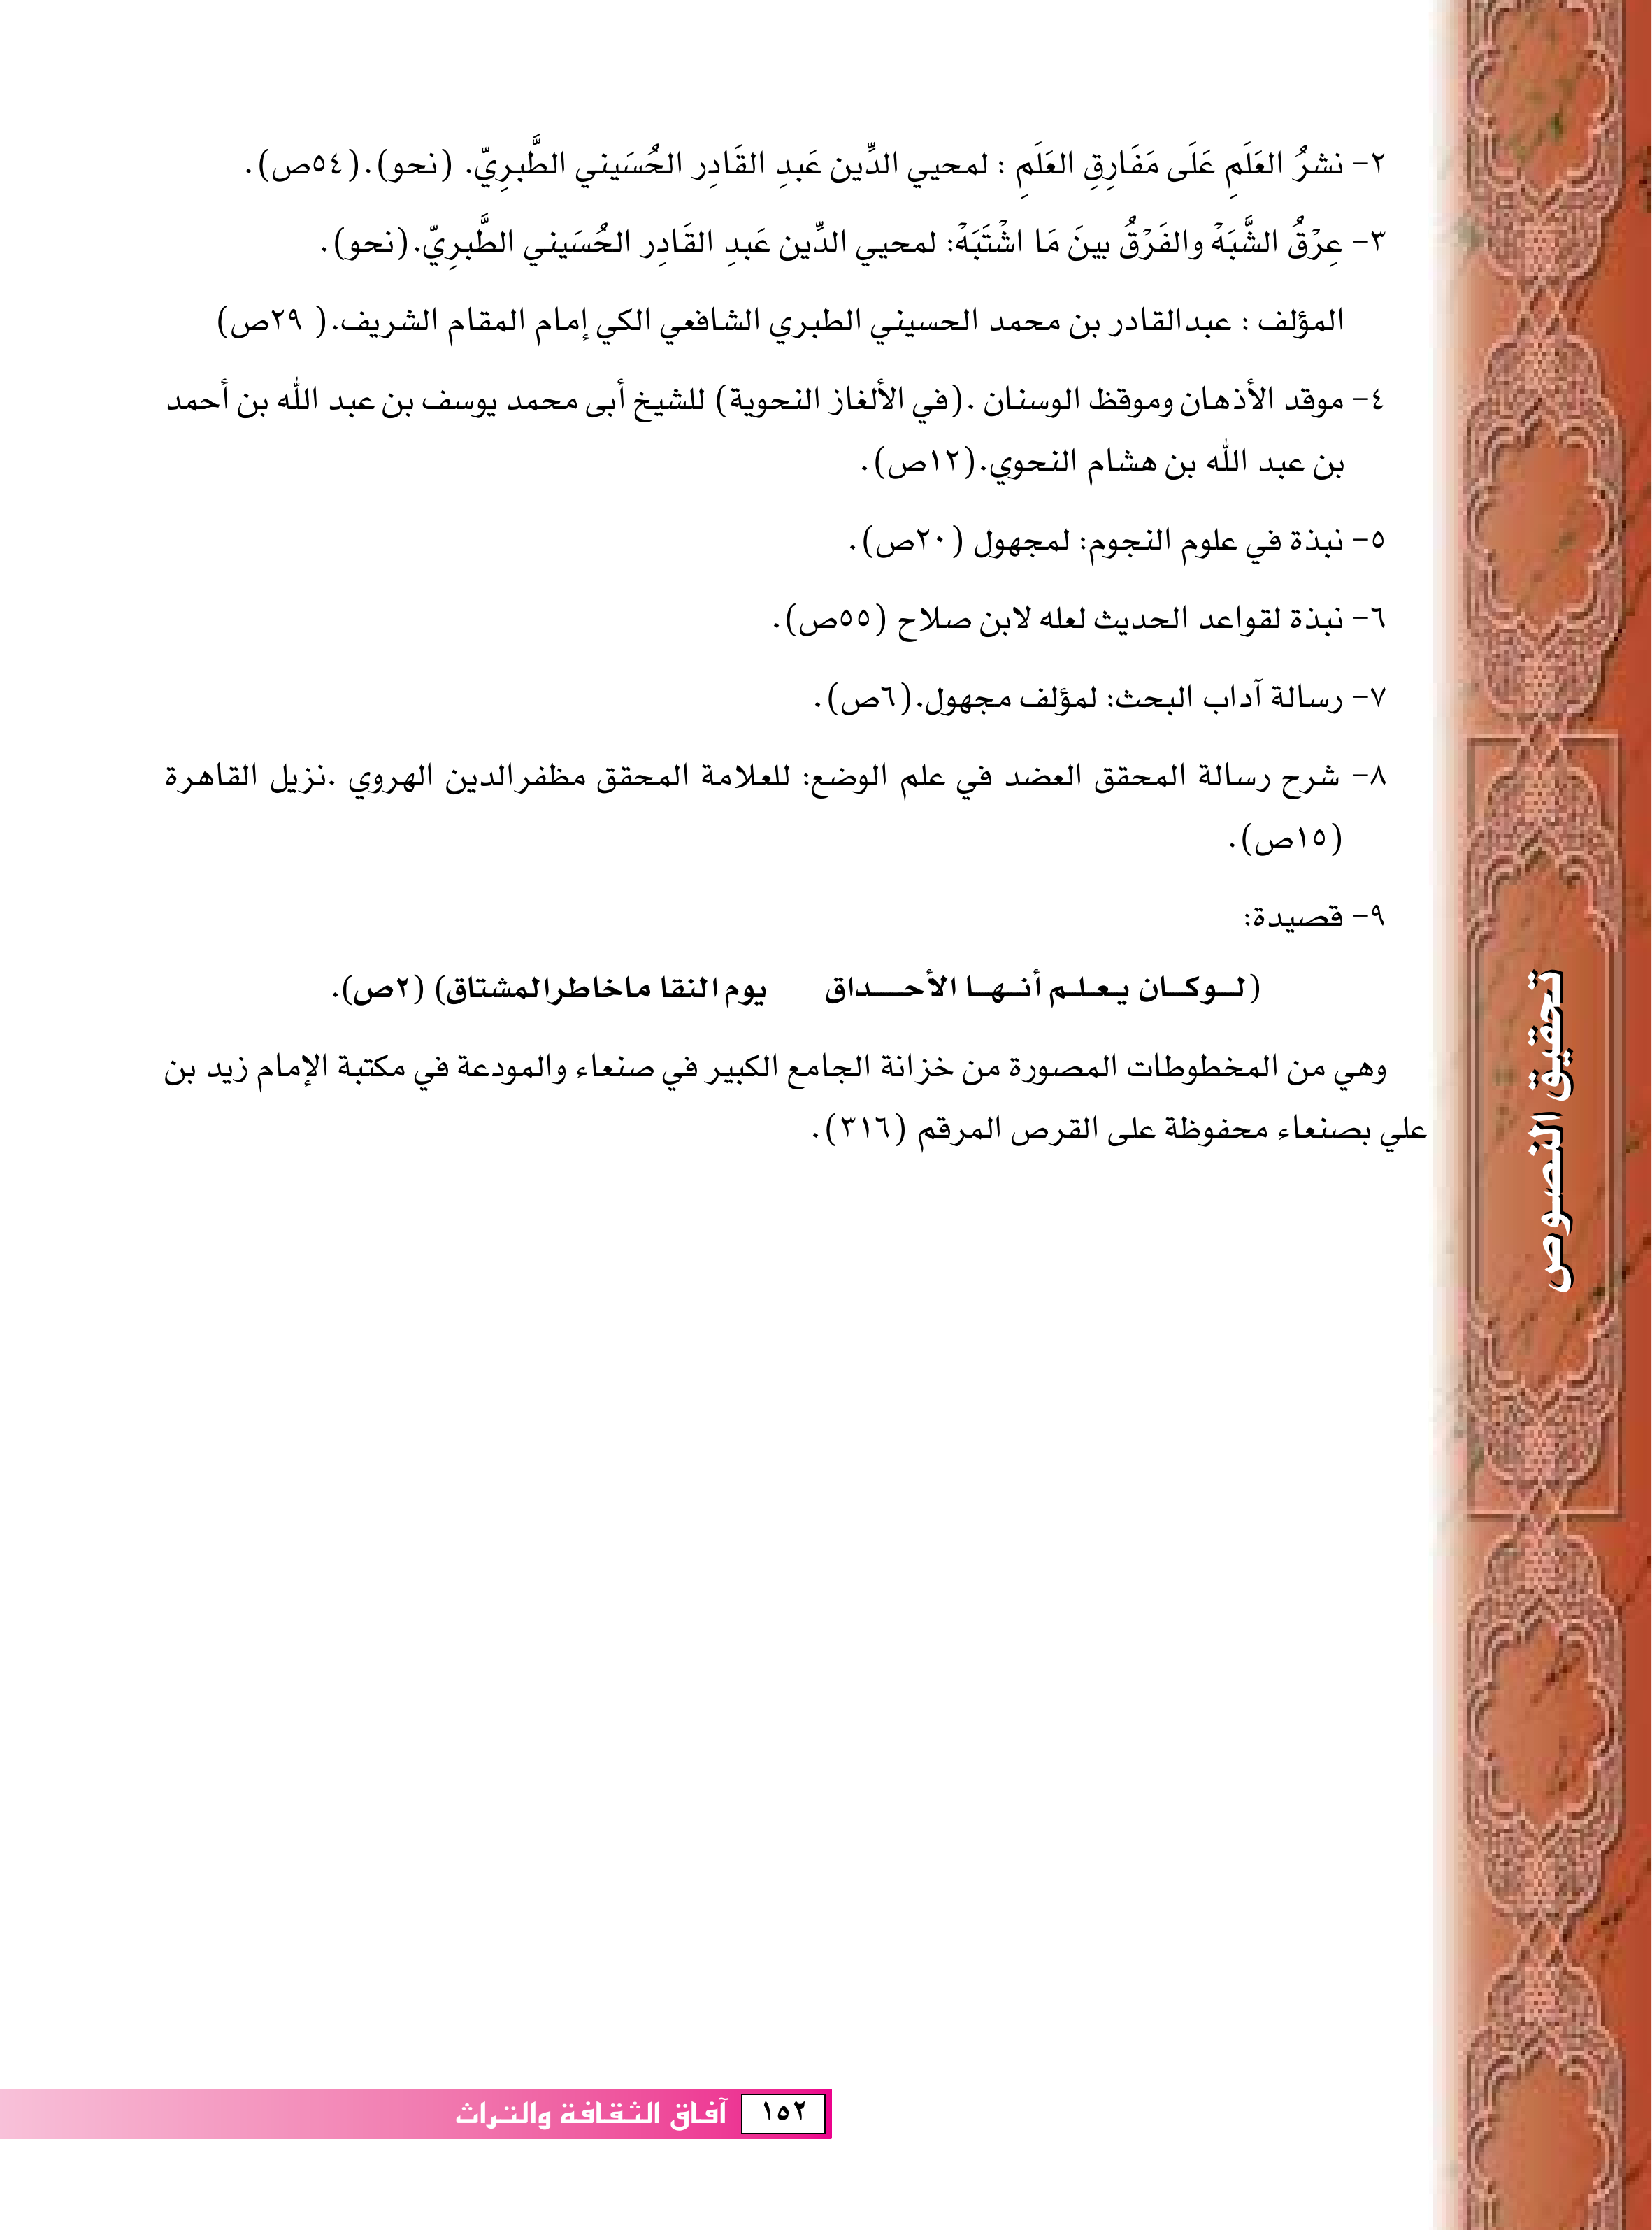 ٢- نشرُ العَلَمِ عَلَى مَفَارِقِ العَلَمِ : لمحيي الدِّين عَبدِ القَادِر الحُسَيني الطَّبرِيّ. (نحو).(٥٤ص).
٣- عِرْقُ الشَّبَهْ والفَرْقُ بينَ مَا اشْتَبَهْ: لمحيي الدِّين عَبدِ القَادِر الحُسَيني الطَّبرِيّ.(نحو).
المؤلف : عبدالقادر بن محمد الحسيني الطبري الشافعي الكي إمام المقام الشريف.( ٢٩ص)
٤- موقد الأذهان وموقظ الوسنان .(في الألغاز النحوية) للشيخ أبى محمد يوسف بن عبد الله بن أحمد
بن عبد الله بن هشام النحوي.(١٢ص).
٥- نبذة في علوم النجوم: لمجهول (٢٠ص).
٦- نبذة لقواعد الحديث لعله لابن صلاح (٥٥ص).
٧- رسالة آداب البحث: لمؤلف مجهول.(٦ص).
٨- شرح رسالة المحقق العضد في علم الوضع: للعلامة المحقق مظفرالدين الهروي .نزيل القاهرة
(١٥ص).
٩- قصيدة:
(لـوكـان يـعـلـم أنـهـا الأحـــداق يوم النقا ماخاطرالمشتاق) (٢ص).
وهي من المخطوطات المصورة من خزانة الجامع الكبير في صنعاء والمودعة في مكتبة الإمام زيد بن
علي بصنعاء محفوظة على القرص المرقم (٣١٦).
تحقيق النصوص
١٥٢ آفـاق الـثـقـافـة والـتـراث